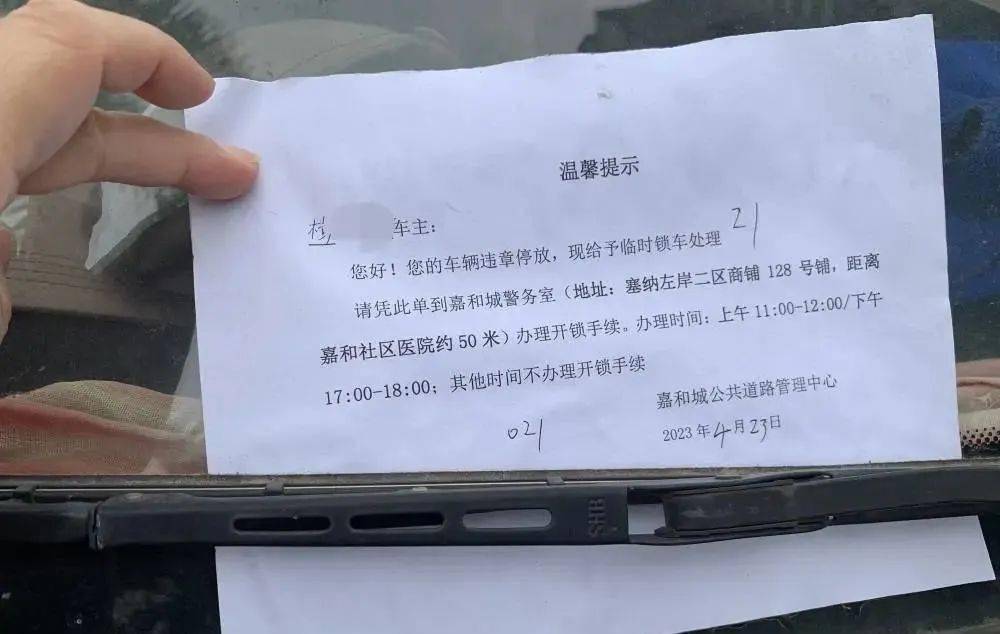 温馨提示
桂 车主：
您好！您的车辆违章停放，现给予临时锁车处理 21
请凭此单到嘉和城警务室（地址：塞纳左岸二区商铺 128 号铺，距离
嘉和社区医院约 50 米）办理开锁手续。办理时间：上午 11:00-12:00/下午
17:00-18:00；其他时间不办理开锁手续
嘉和城公共道路管理中心
021
2023 年 4 月 23 日
SHB